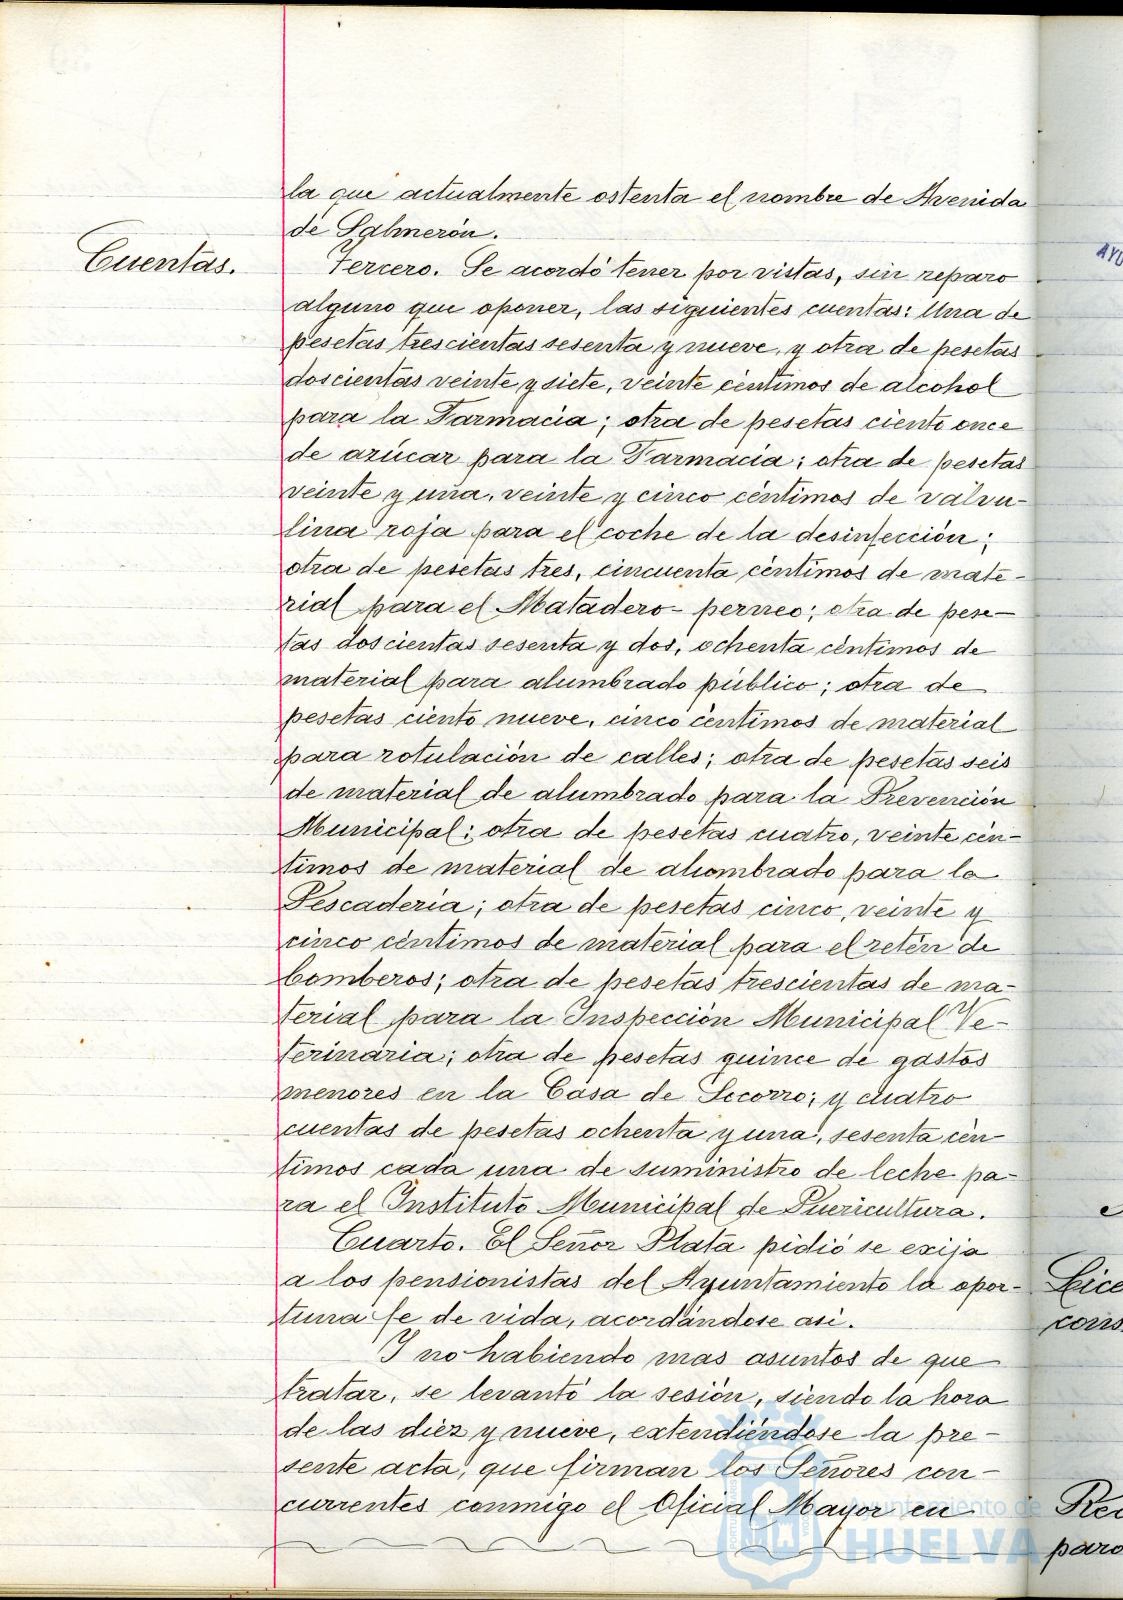 la que actualmente ostenta el nombre de Avenida
de Salmerón.
Cuentas.
Tercero. Se acordó tener por vistas, sin reparo
alguno que oponer, las siguientes cuentas: Una de
pesetas trescientas sesenta y nueve, y otra de pesetas
doscientas veinte y siete, veinte céntimos de alcohol
para la Farmacia; otra de pesetas ciento once
de azúcar para la Farmacia; otra de pesetas
veinte y una, veinte y cinco céntimos de valvu-
lina roja para el coche de la desinfección;
otra de pesetas tres, cincuenta céntimos de mate-
rial para el Matadero-perneo; otra de pese-
tas doscientas sesenta y dos, ochenta céntimos de
material para alumbrado público; otra de
pesetas ciento nueve, cinco céntimos de material
para rotulación de calles; otra de pesetas seis
de material de alumbrado para la Prevención
Municipal; otra de pesetas cuatro, veinte cén-
timos de material de alumbrado para la
Pescadería; otra de pesetas cinco, veinte y
cinco céntimos de material para el retén de
bomberos; otra de pesetas trescientas de ma-
terial para la Inspección Municipal Ve-
terinaria; otra de pesetas quince de gastos
menores en la Casa de Socorro; y cuatro
cuentas de pesetas ochenta y una, sesenta cén-
timos cada una de suministro de leche pa-
ra el Instituto Municipal de Puericultura.
Cuarto. El Señor Plata pidió se exija
a los pensionistas del Ayuntamiento la opor-
tuna fe de vida, acordándose asi.
Y no habiendo mas asuntos de que
tratar, se levantó la sesión, siendo la hora
de las diez y nueve, extendiéndose la pre-
sente acta, que firman los Señores con-
currentes conmigo el Oficial Mayor en
Ayuntamiento de
HUELVA
AYU
Lice
cons
paro